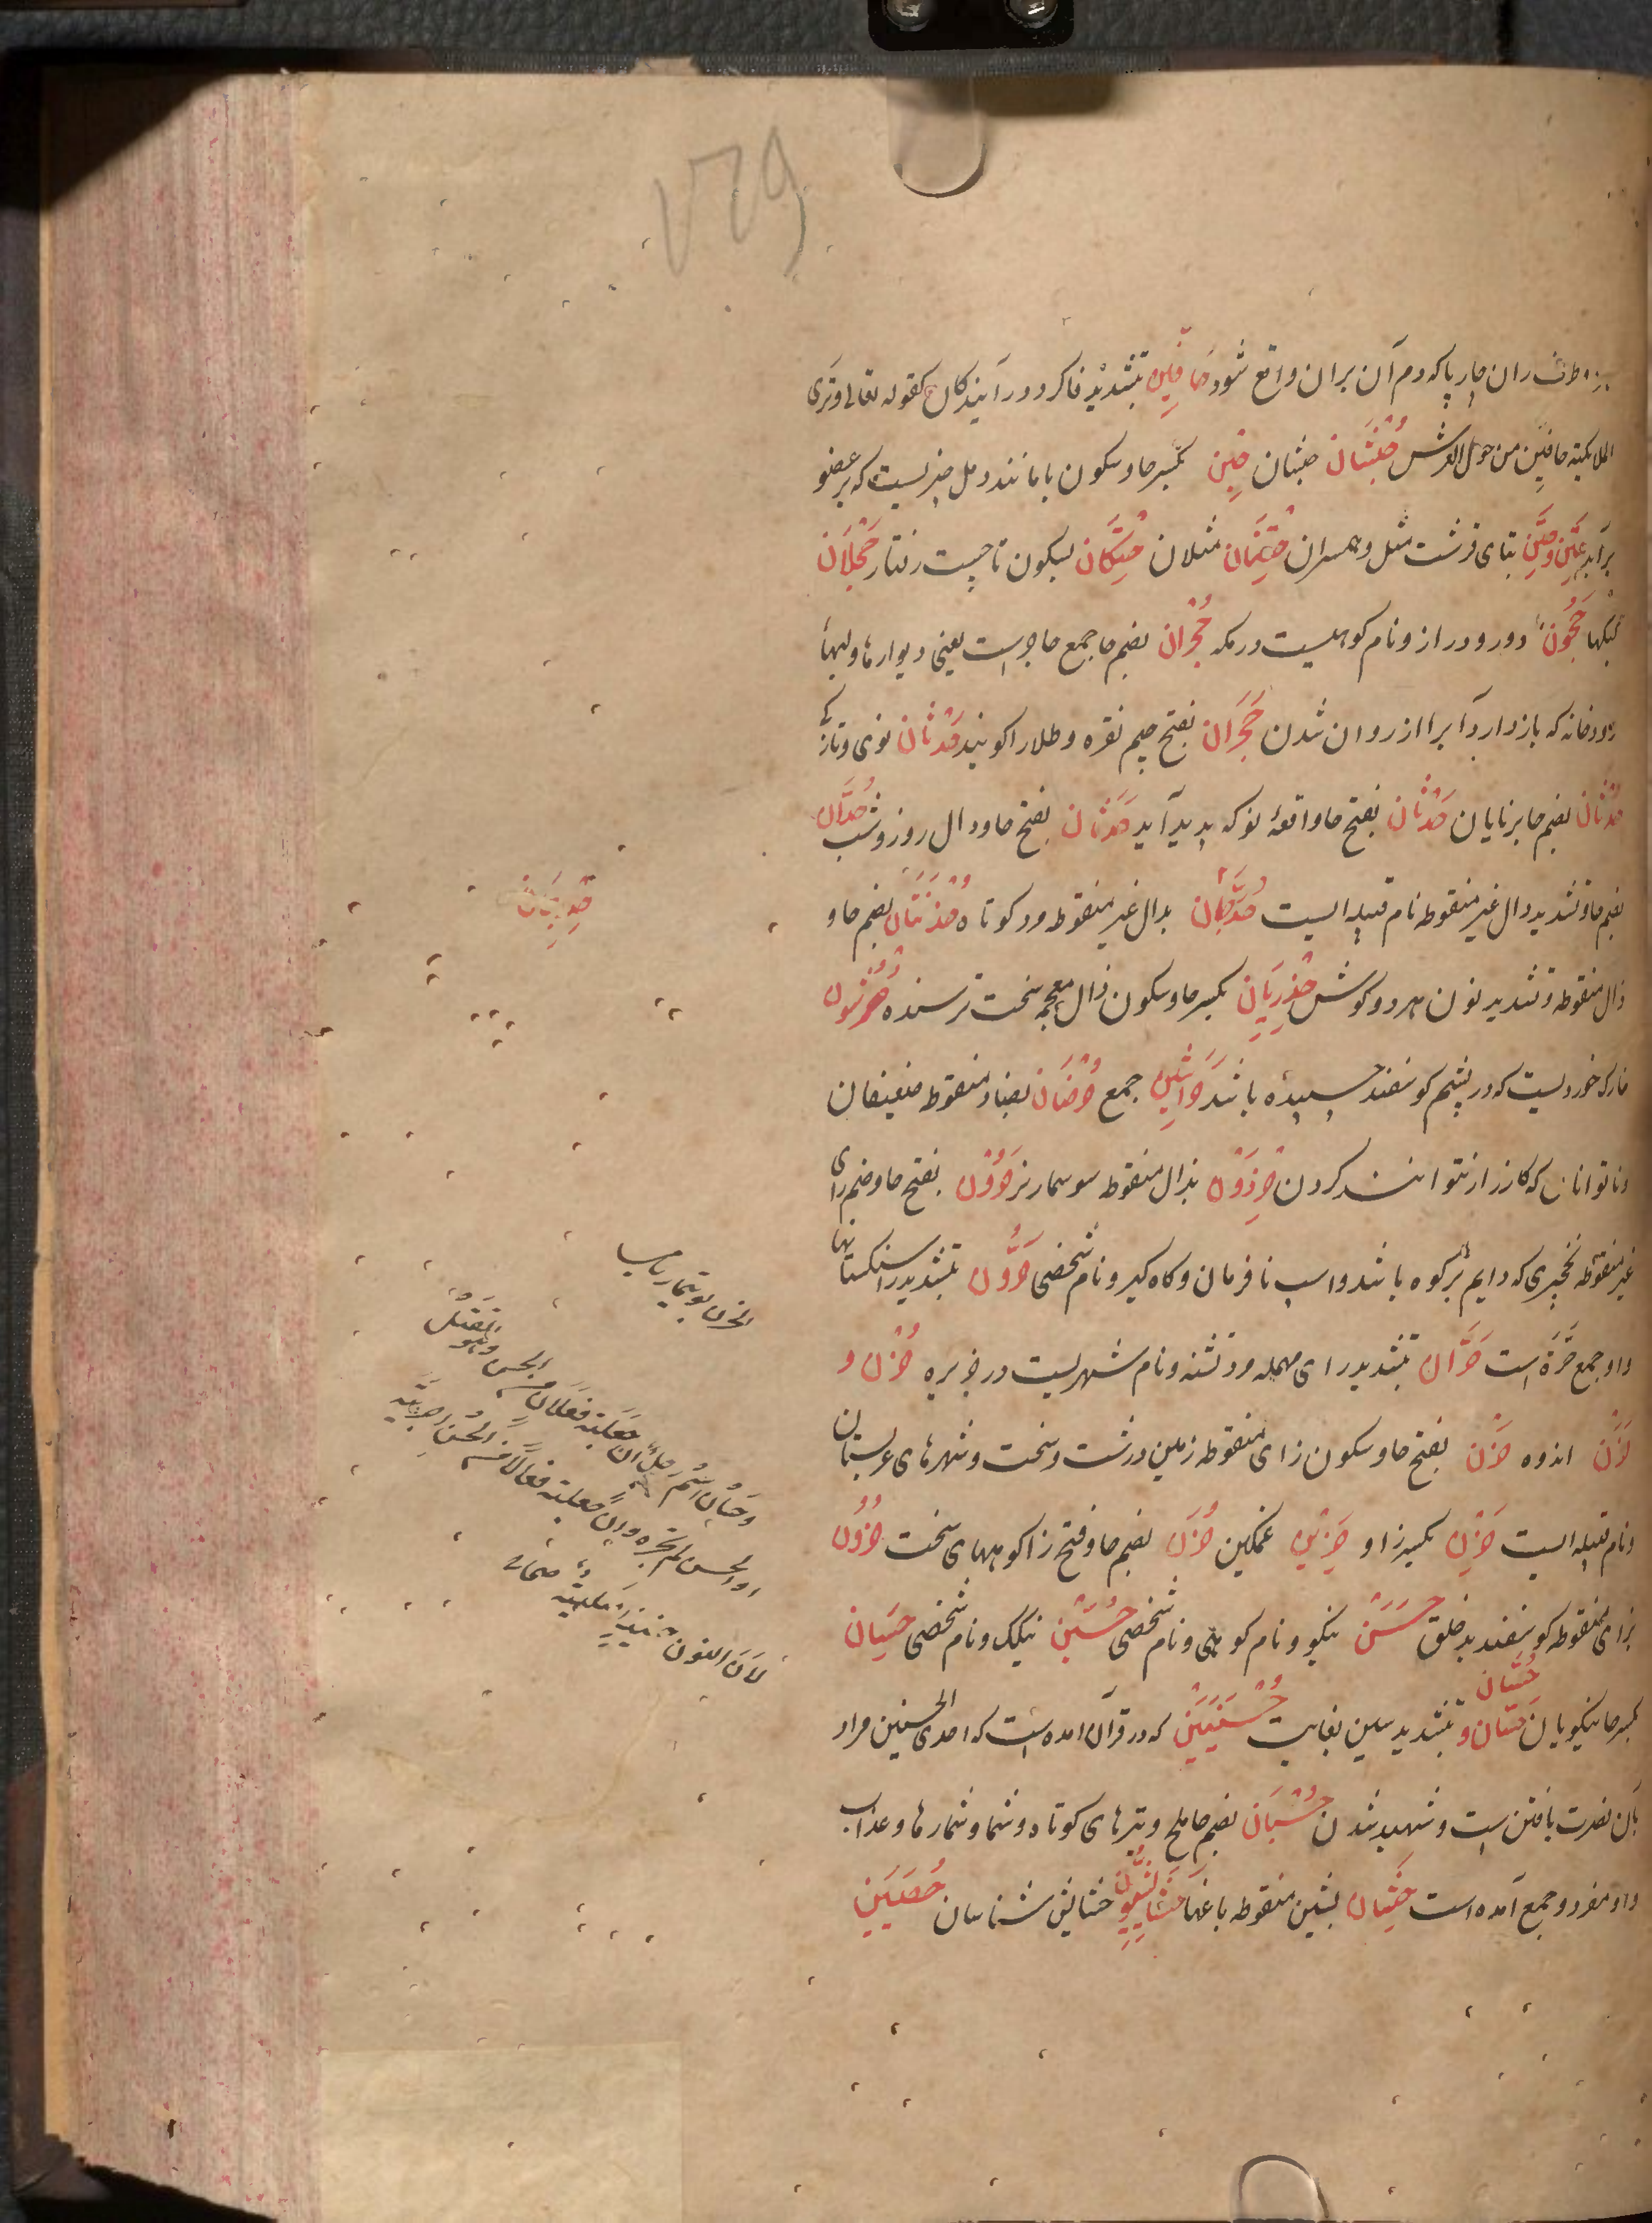 ران چارپا که دم آن بران واقع شود حَافِّین بتشدید فا کرد درآیندکان کقوله تعالی وتری
الملایکة حافین من حول العرش حُبْشَان حبشان حِبْن بکسر حا وسکون با مانند دمل چیزیست که بر عضو
برآید حَتِّین بتای قرشت مثل وهمسران حِتْنَان مثلان حَتَکَان بسکون تا چست رفتار حَجْلَان
حَجُون دور ودراز ونام کوهیست در مکه حُجْرَان بضم حا جمع حاجر است یعنی دیوارها ولبهاء
رودخانه که بازدارد آبرا از روان شدن حَجَرَان بفتح جیم نقره وطلا را کویند حِدْثَان نوی وتازکی
حُدْثَان بضم حا برنایان حَدْثَان بفتح حا واقعهٔ نو که پدید آید حَدَثَان بفتح حا ودال روز وشب حُدَّان
بضم حا وتشدید دال غیر منقوطه نام قبیله ایست بدال غیر منقوطه مرد کوتاه حُذُنَّتَان بضم حا و
ذال منقوطه وتشدید نون هر دو کوش حِذْرِیَان بکسر حا وسکون ذال معجمه سخت ترسنده
خارک خوردیست که در پشم کوسفند چسپیده باشد حَرَاشِین جمع حُرْضَان بضاد منقوطه ضعیفان
وناتوانان که کارزار نتوانند کردن حِرْذَوْن بذال منقوطه سوسمار نر حَرُون بفتح حا وضم رای
غیر منقوطه نخچیری که دایم بر کوه باشد واسپ نافرمان وکاه کیر ونام شخصی حَرُّون بتشدید را سنکستانها
واو جمع حَرَّة است حَرَّان بتشدید رای مهمله مرد تشنه ونام شهریست در جزیره حُزْن و
حَزَن اندوه حَزْن بفتح حا وسکون زای منقوطه زمین درشت وسخت وشهرهای عربستان
ونام قبیله ایست حَزِن بکسر زا و حَزِین غمکین حُزَن بضم حا وفتح زا کوههای سخت حَزُون
بزای منقوطه کوسفند بدخلق حَسَن نیکو ونام کوهی ونام شخصی حُسَیْن نیکک ونام شخصی حِسَان
حُسَّان
بکسر حا نیکویان حَسَّان و بتشدید سین بغایت حُسْنَیَیْن که در قرآن آمده است که احدی الحسنیین مراد
بآن نصرت یافتن است وشهید شدن حُسْبَان بضم حا ملخ وتیرهای کوتاه وشمار وشمارها وعذاب
واو مفرد وجمع آمده است حِشَّان بشین منقوطه باغها خشایش شناسان حُصَیْن
حِدِبَّان
الحزن بوتیمار
وحَسَّان اسم رجل ان جعلته فعلان من الحس وهو القتل
او الحس لم تجره وان جعلته فعالا من الحسن اجریته
لان النون حینئذ اصلیة صحاح